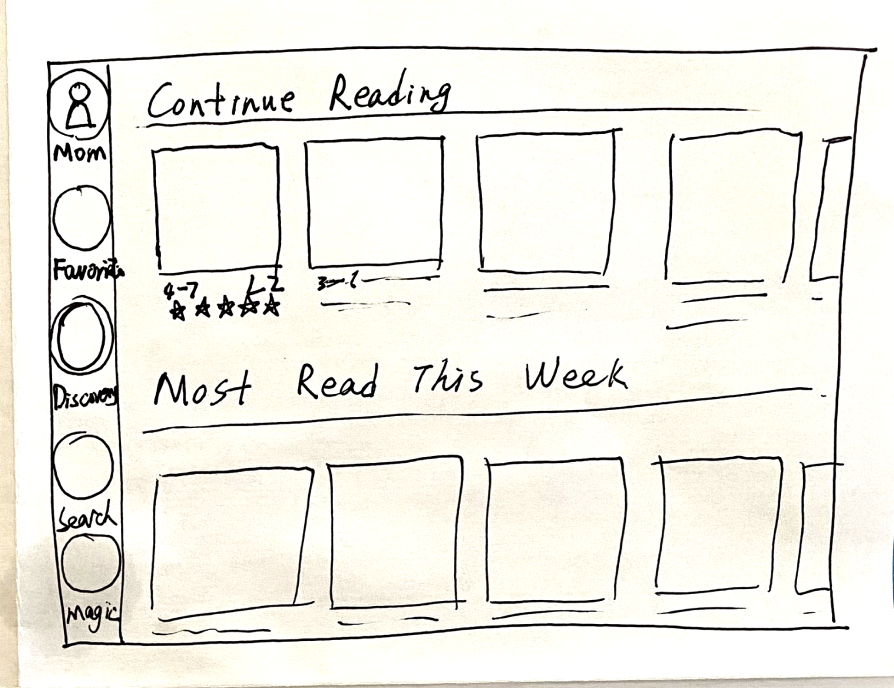 Mom
Favorite
Discovery
Search
Magic
Continue Reading
4-7 L2
Most Read This Week